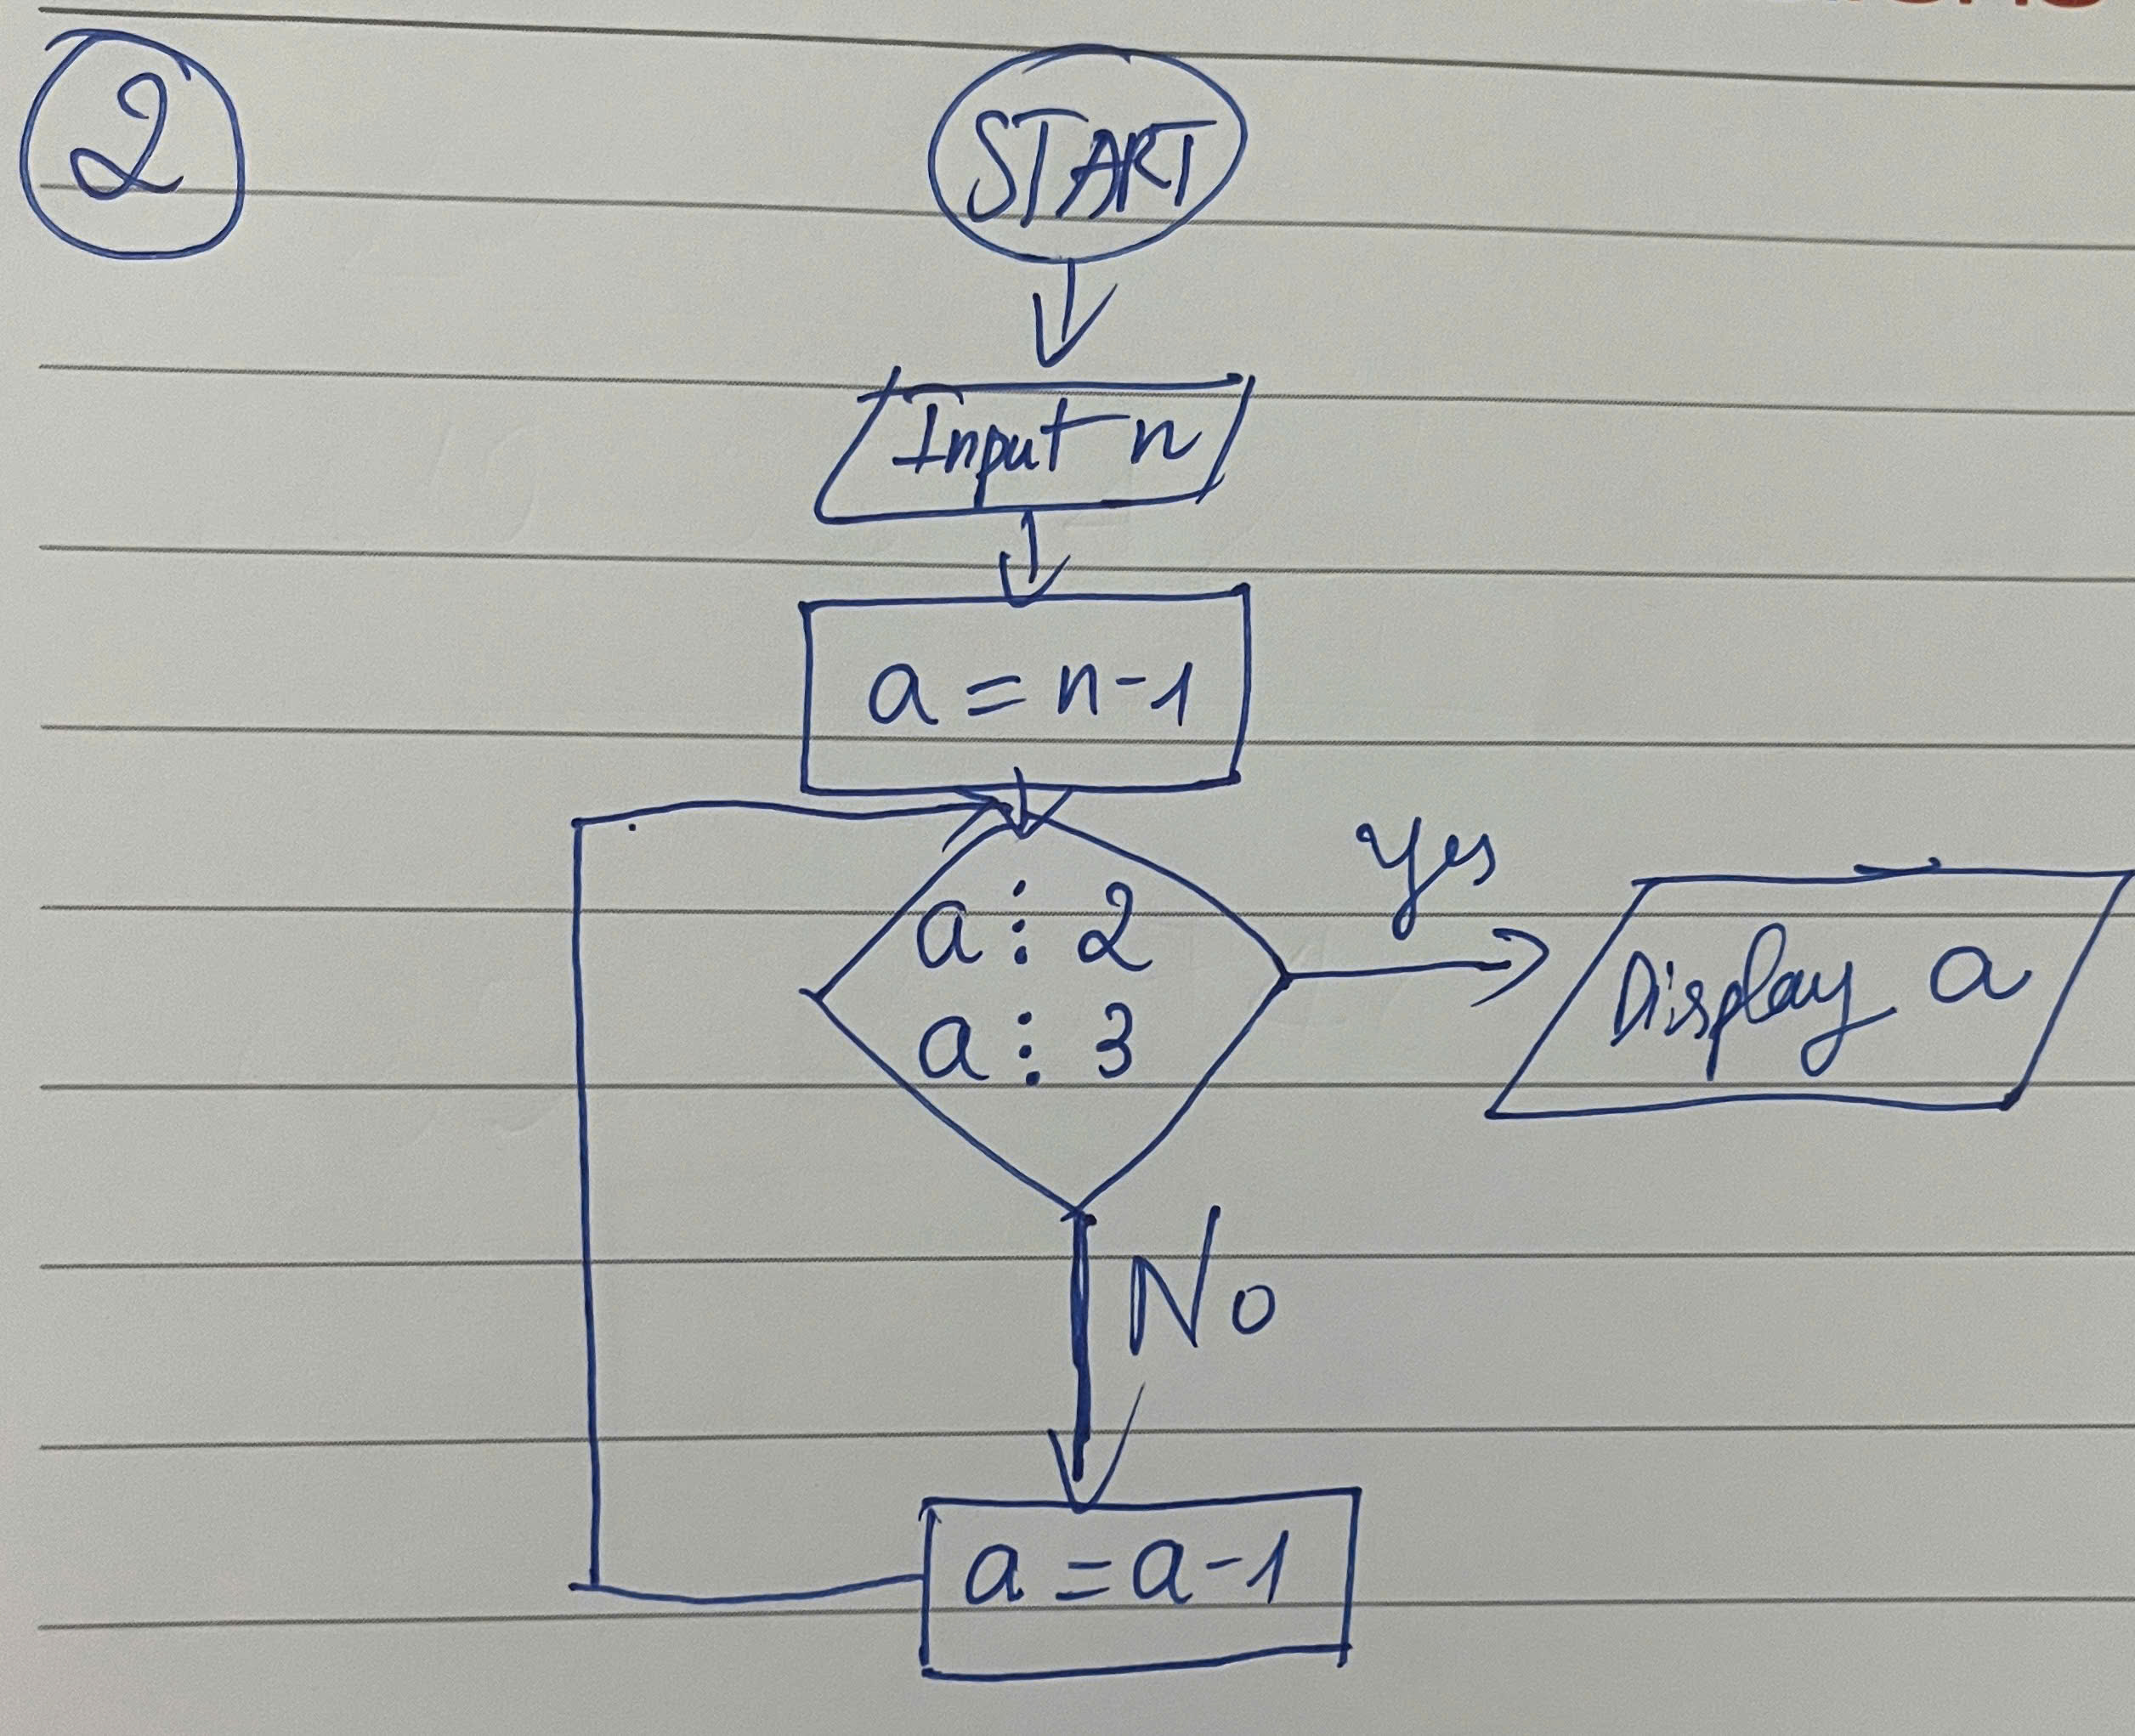 2
START
Input n
a = n-1
a ⋮ 2
a ⋮ 3
Yes
Display a
No
a = a-1